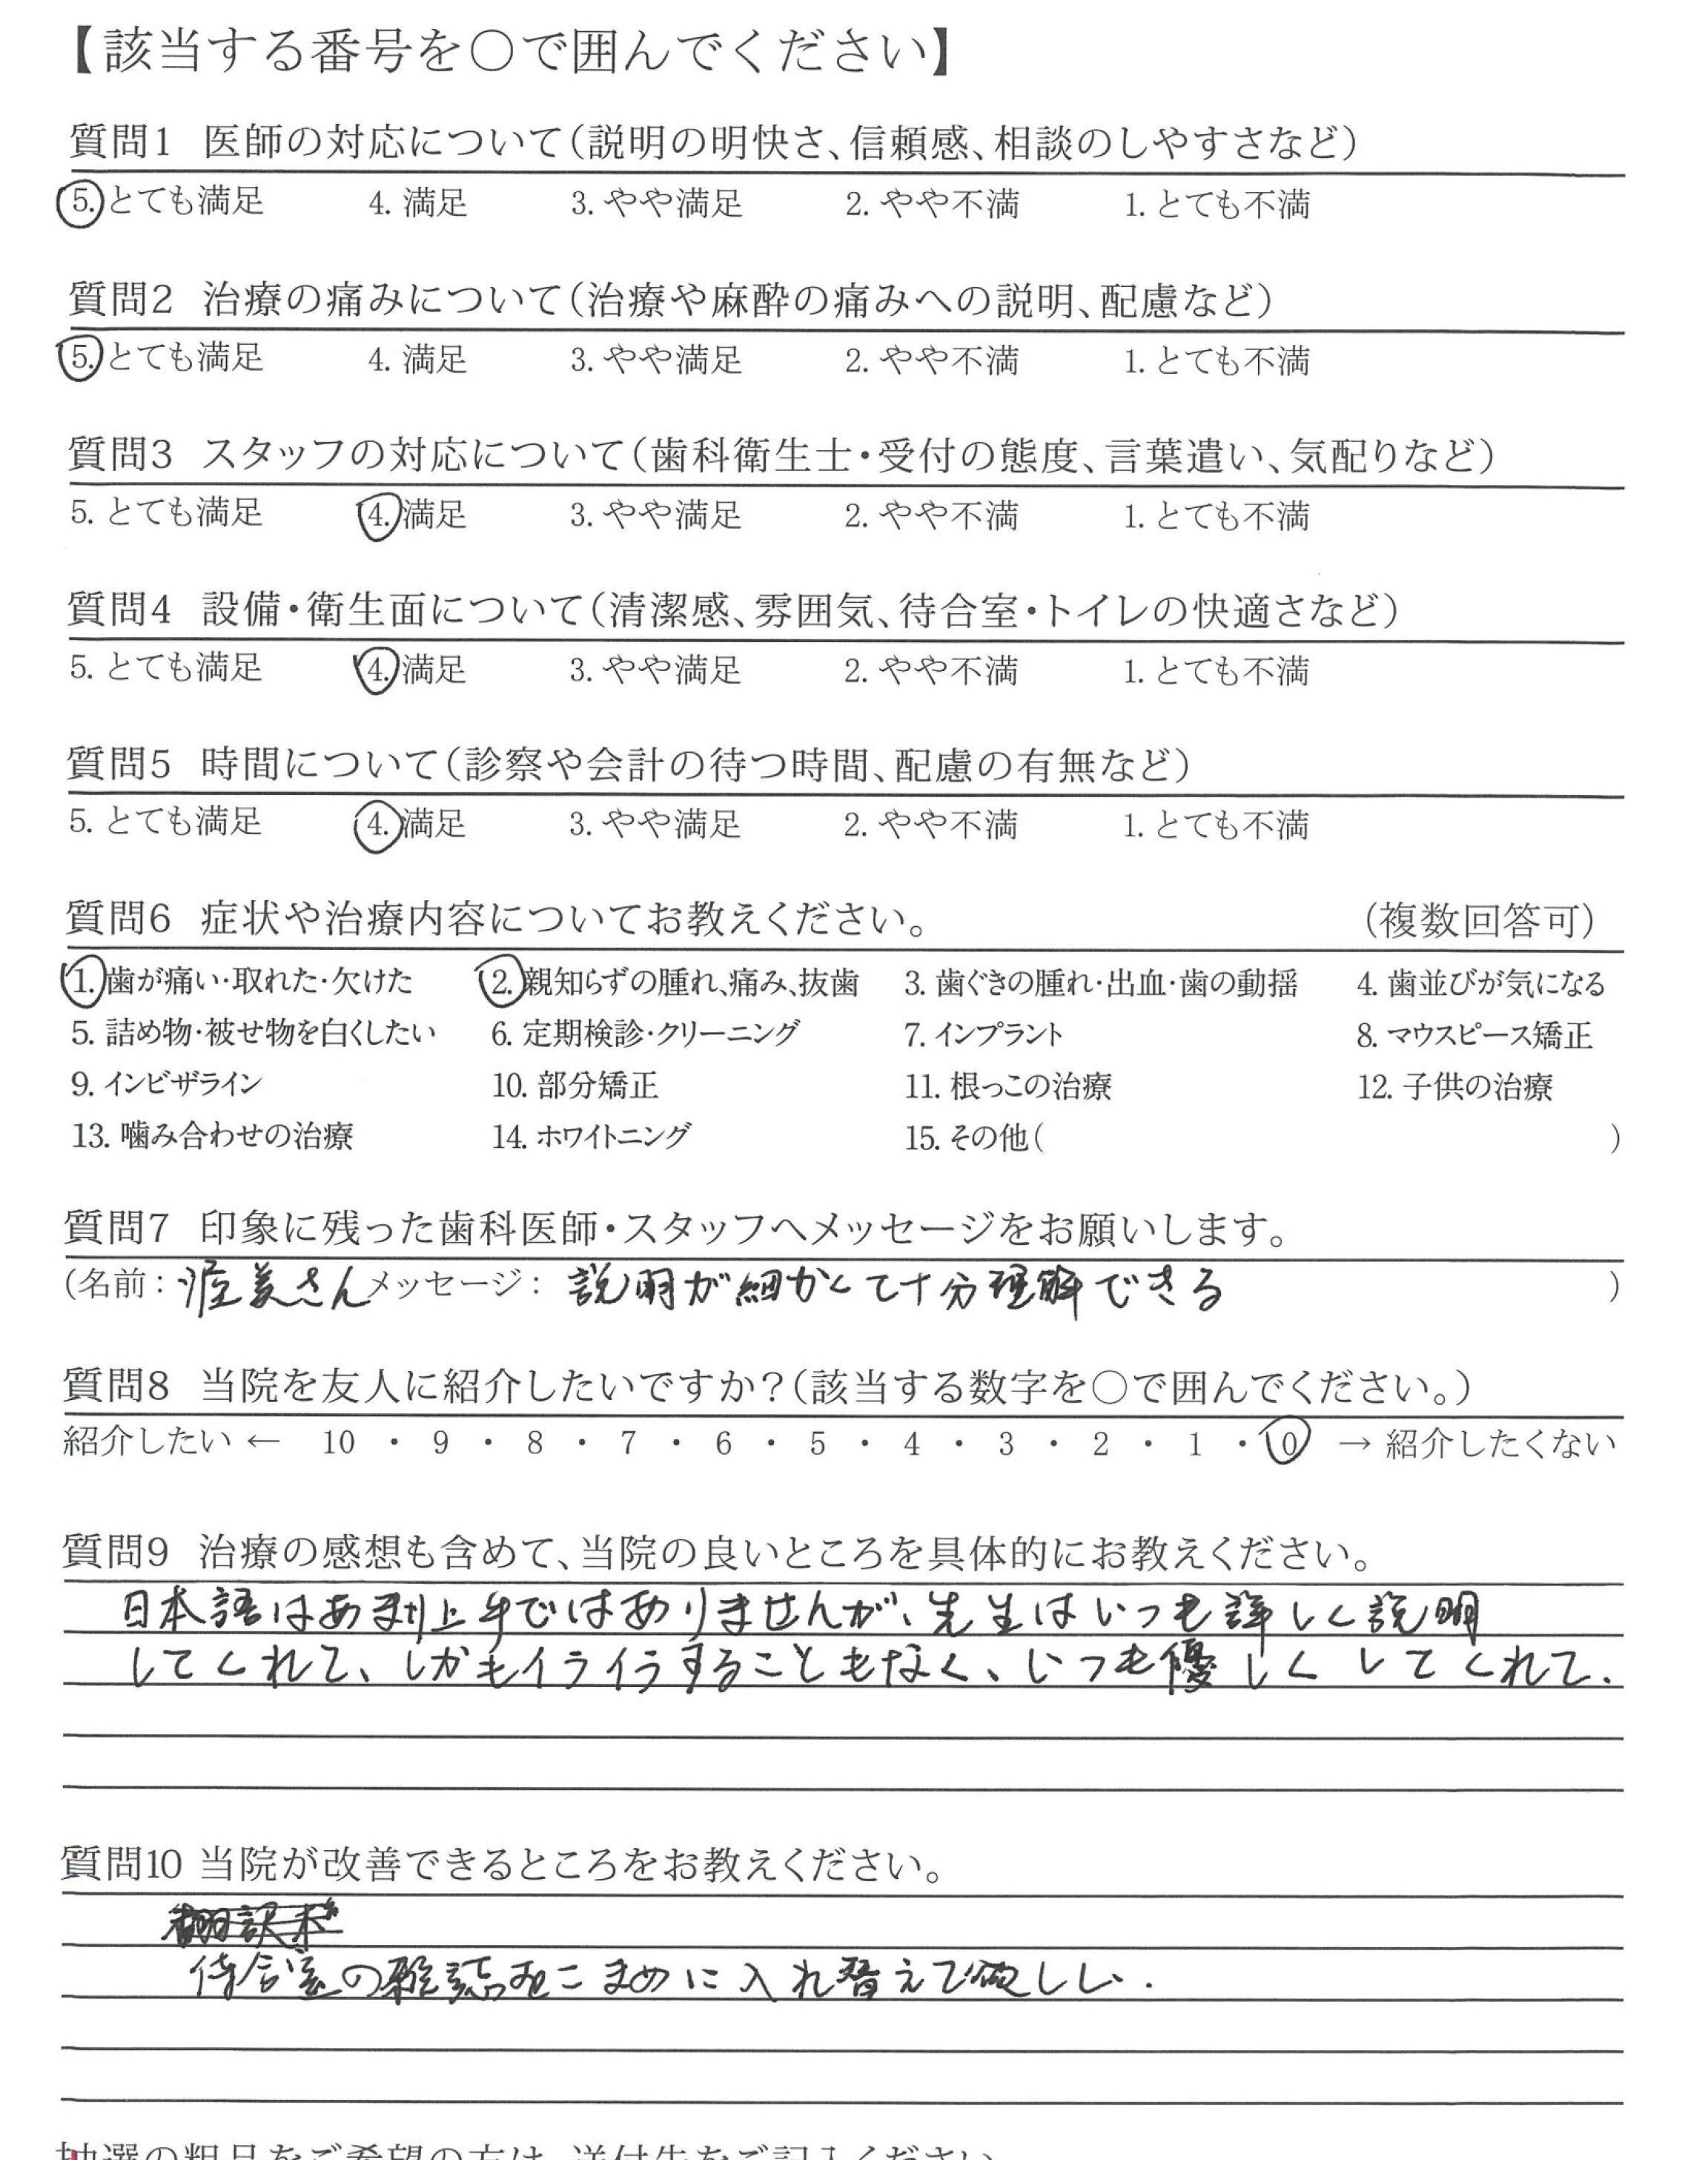 【該当する番号を○で囲んでください】
質問1 医師の対応について(説明の明快さ、信頼感、相談のしやすさなど)
5. とても満足 4. 満足 3. やや満足 2. やや不満 1. とても不満
質問2 治療の痛みについて(治療や麻酔の痛みへの説明、配慮など)
5. とても満足 4. 満足 3. やや満足 2. やや不満 1. とても不満
質問3 スタッフの対応について(歯科衛生士・受付の態度、言葉遣い、気配りなど)
5. とても満足 4. 満足 3. やや満足 2. やや不満 1. とても不満
質問4 設備・衛生面について(清潔感、雰囲気、待合室・トイレの快適さなど)
5. とても満足 4. 満足 3. やや満足 2. やや不満 1. とても不満
質問5 時間について(診察や会計の待つ時間、配慮の有無など)
5. とても満足 4. 満足 3. やや満足 2. やや不満 1. とても不満
質問6 症状や治療内容についてお教えください。 (複数回答可)
1. 歯が痛い・取れた・欠けた 2. 親知らずの腫れ、痛み、抜歯 3. 歯ぐきの腫れ・出血・歯の動揺 4. 歯並びが気になる
5. 詰め物・被せ物を白くしたい 6. 定期検診・クリーニング 7. インプラント 8. マウスピース矯正
9. インビザライン 10. 部分矯正 11. 根っこの治療 12. 子供の治療
13. 噛み合わせの治療 14. ホワイトニング 15. その他( )
質問7 印象に残った歯科医師・スタッフへメッセージをお願いします。
(名前: さん メッセージ: 説明が細かくて十分理解できる )
質問8 当院を友人に紹介したいですか?(該当する数字を○で囲んでください。)
紹介したい ← 10 ・ 9 ・ 8 ・ 7 ・ 6 ・ 5 ・ 4 ・ 3 ・ 2 ・ 1 ・ 0 → 紹介したくない
質問9 治療の感想も含めて、当院の良いところを具体的にお教えください。
日本語はあまり上手ではありませんが、先生はいつも詳しく説明
してくれて、しかもイライラすることもなく、いつも優しくしてくれて.
質問10 当院が改善できるところをお教えください。
待合室の雑誌をこまめに入れ替えて欲しい.
抽選の粗品をご希望の方は、送付先をご記入ください